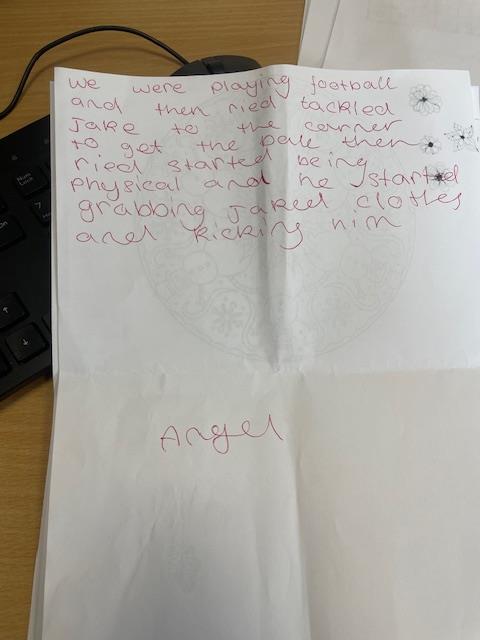 we were playing football
and then ried tackled
Jake to the corner
to get the ball then
ried started being
physical and he started
grabbing Jaked clothes
and kicking him
Angel